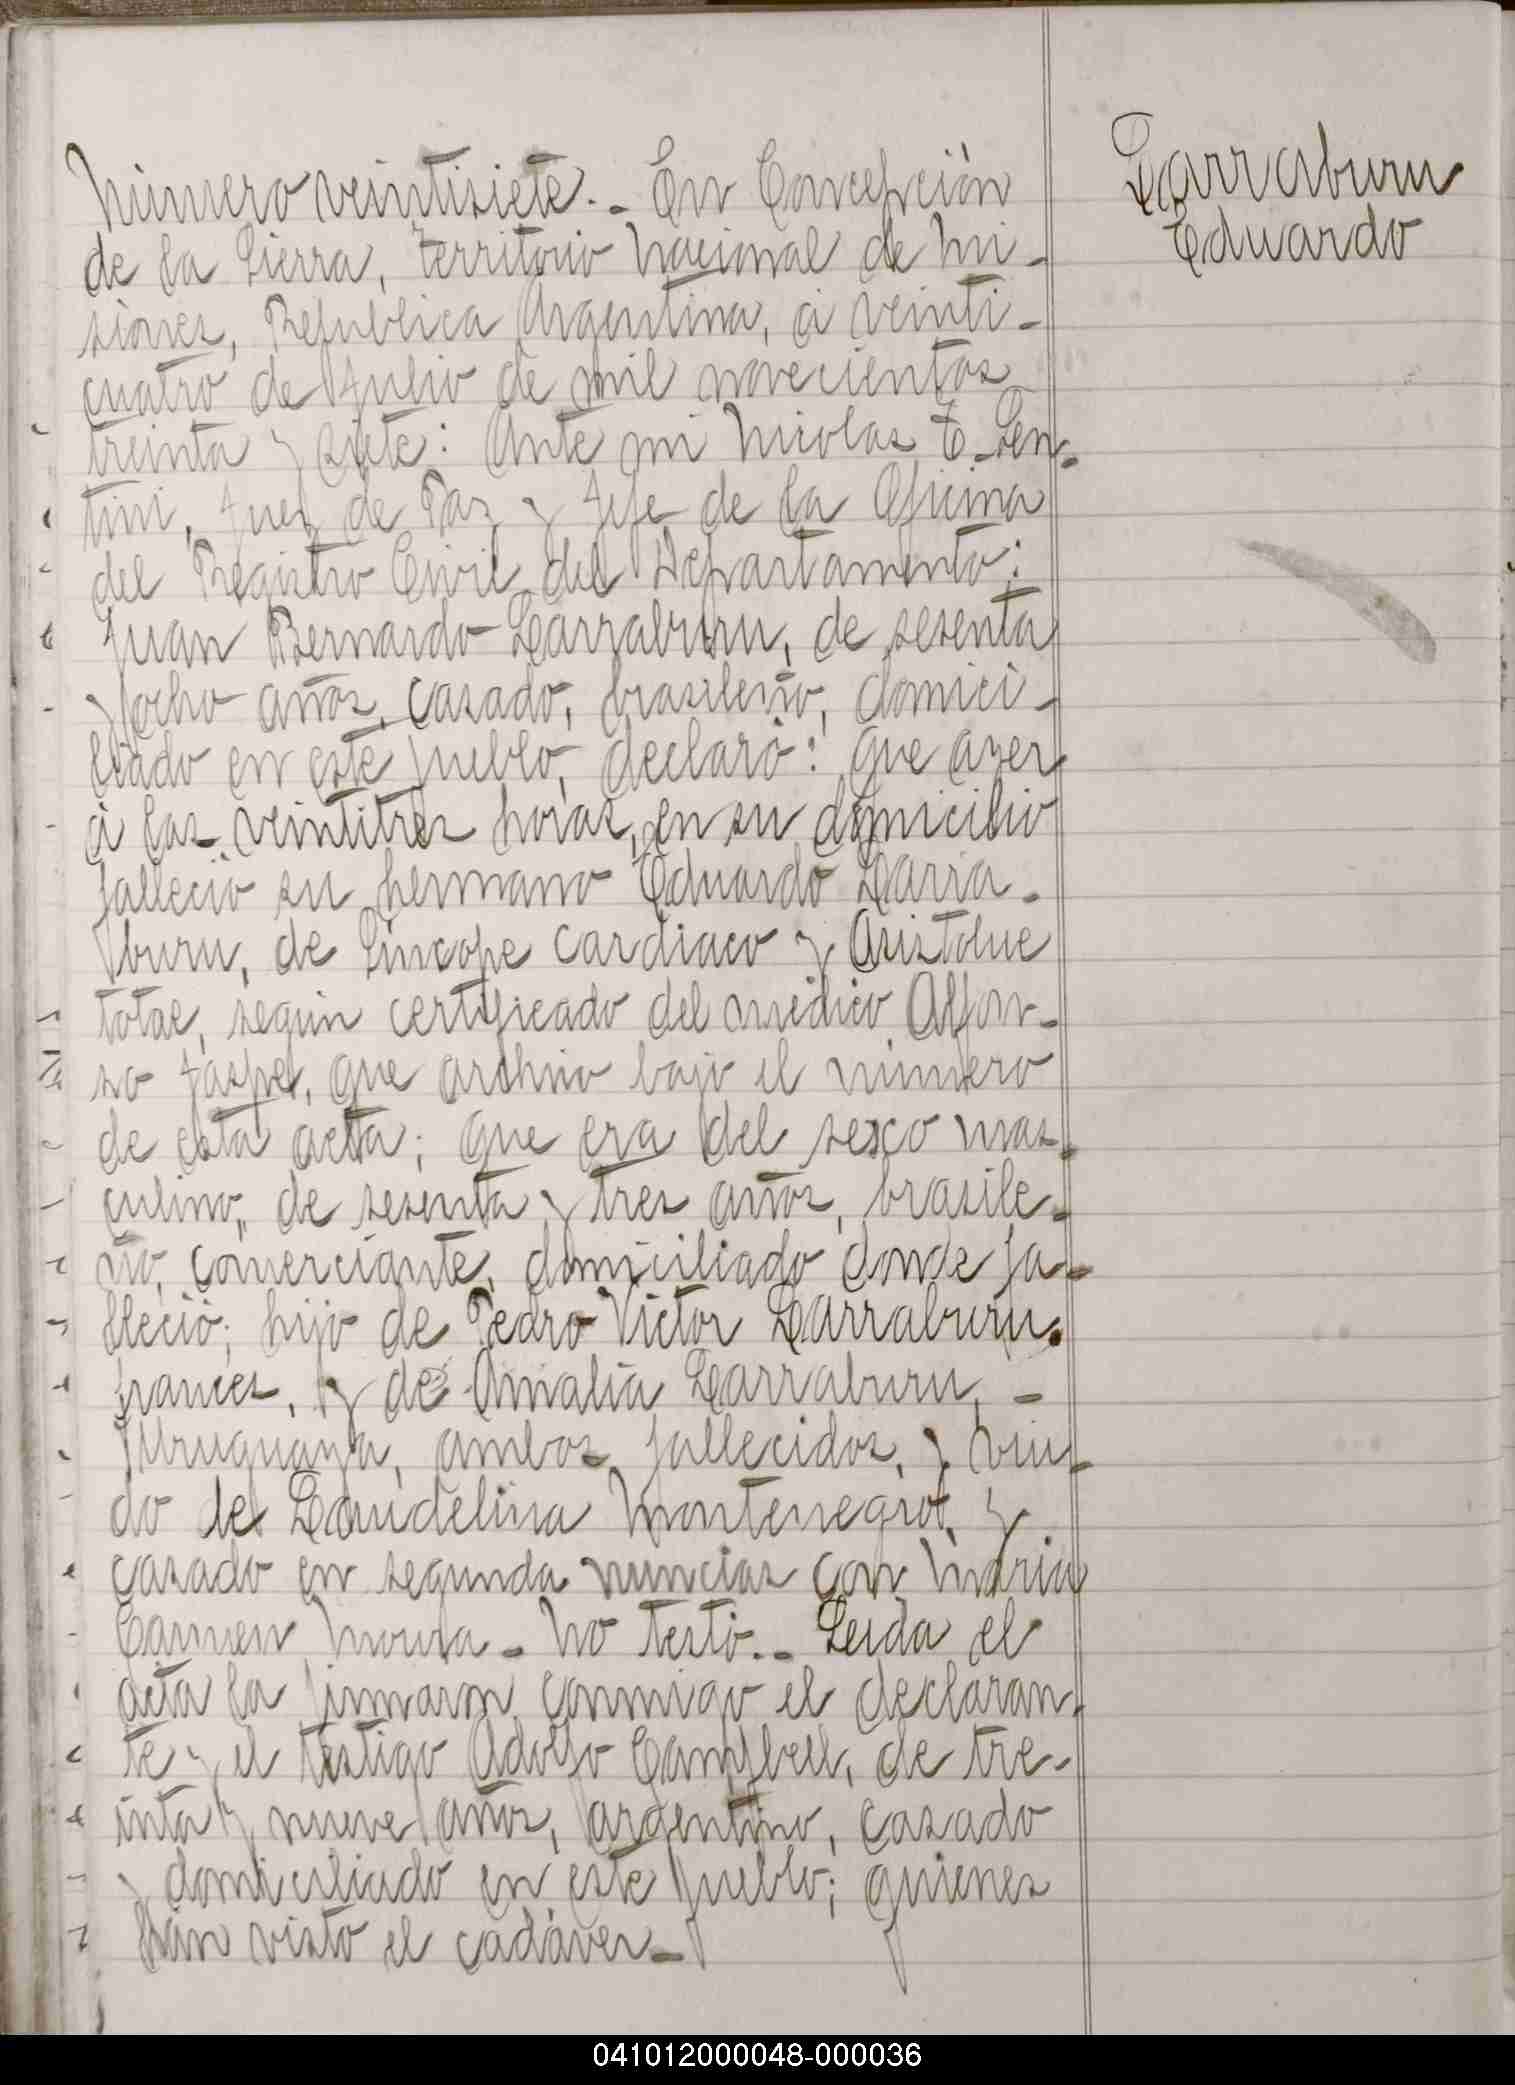 Larraburu
Eduardo
Número veintisiete.- En Concepción
de la Sierra, Territorio Nacional de Mi-
siones, Republica Argentina, á veinti-
cuatro de Julio de mil novecientos
treinta y siete: Ante mi Nicolas E. Len-
tini, Juez de Paz y Jefe de la Oficina
del Registro Civil del Departamento:
Juan Bernardo Larraburu, de sesenta
y ocho años, casado, brasileño, domici-
liado en este pueblo, declaró: Que ayer
á las veintitres horas, en su domicilio
falleció su hermano Eduardo Larra-
buru, de Sincope cardiaco y Asistolue
total, según certificado del médico Alfon-
so Jaspe, que archivo bajo el número
de esta acta; que era del sexo mas-
culino, de sesenta y tres años, brasile-
ño, comerciante, domiciliado donde fa-
lleció; hijo de Pedro Victor Larraburu,
frances, y de Amalia Larraburu, -
Uruguaya, ambos fallecidos, y viu-
do de Laudelina Montenegro, y
casado en segunda nuncias con Maria
Carmen Moura - No testó.- Leida el
acta la firmaron conmigo el declaran-
te y el testigo Adolfo Campbell, de tre-
inta y nueve años, argentino, casado
y domiciliado en este pueblo; quienes
hán visto el cadáver.-
041012000048-000036